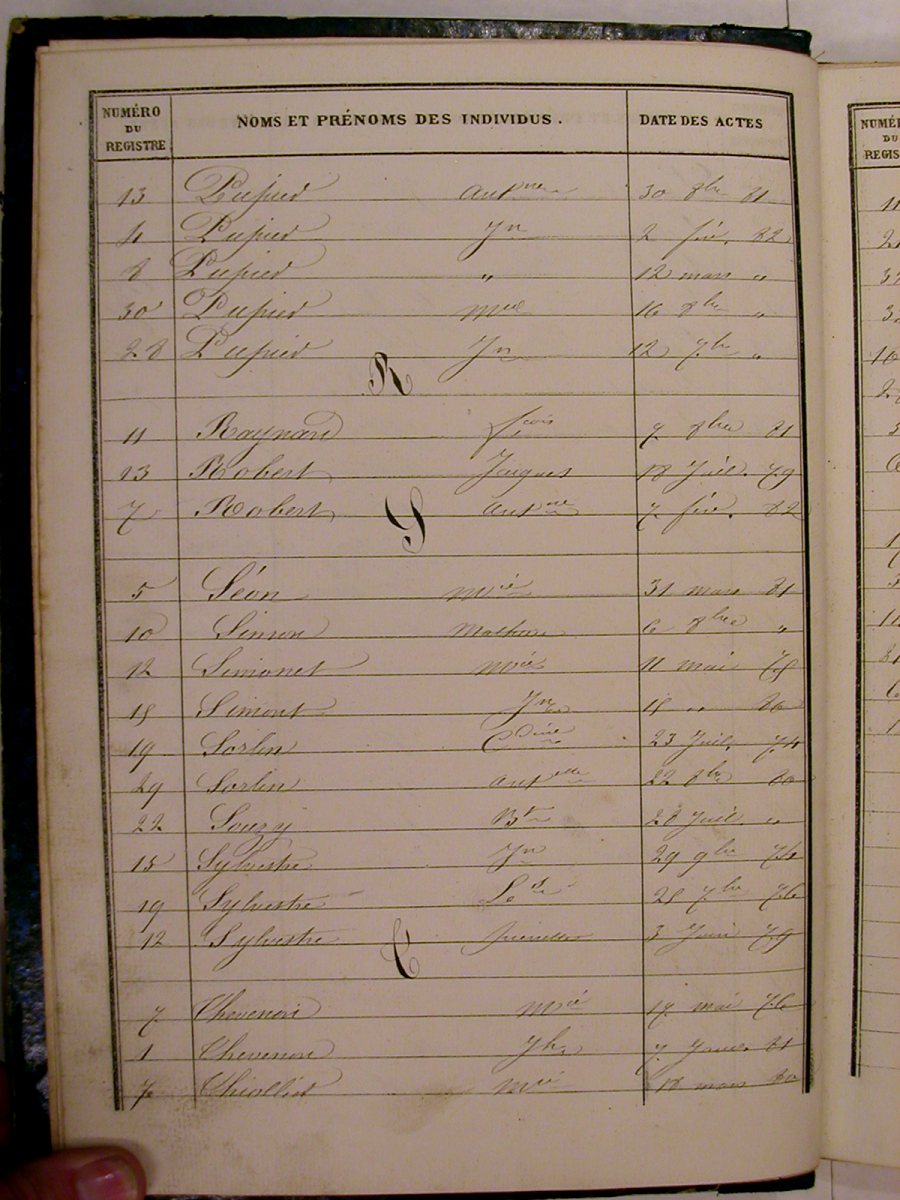 NUMÉRO DU REGISTRE NOMS ET PRÉNOMS DES INDIVIDUS. DATE DES ACTES
13 Pupied Antne 30 8bre 81
4 Pupied Jn 2 fév. 82
8 Pupied " 12 mars "
30 Pupied 16 8bre "
28 Pupied Jn 12 7bre "
R
11 Raynard fcois 7 8bre 81
13 Robert Jacques 18 Juil. 79
7 Robert Antne 7 fév. 82
S
5 Séon Mrie 31 mars 81
10 Simon 6 8bre "
12 Simonet Mrie 11 mai 75
15 Simont Jn 15 " 80
19 Sorlin Cdine 23 Juil. 74
29 Sorlin Antelle 22 8bre 80
22 Souzy Bte 28 Juil. "
15 Sylvestre Jn 29 9bre 74
19 Sylvestre 25 7bre 76
12 Sylvestre 3 Juin 79
T
7 Thevenon Mrie 17 mai 76
1 Thevenon Jh 7 Janv. 81
7 Thiollier Mrie 18 mars 80
NUMÉ
DU
REGIS